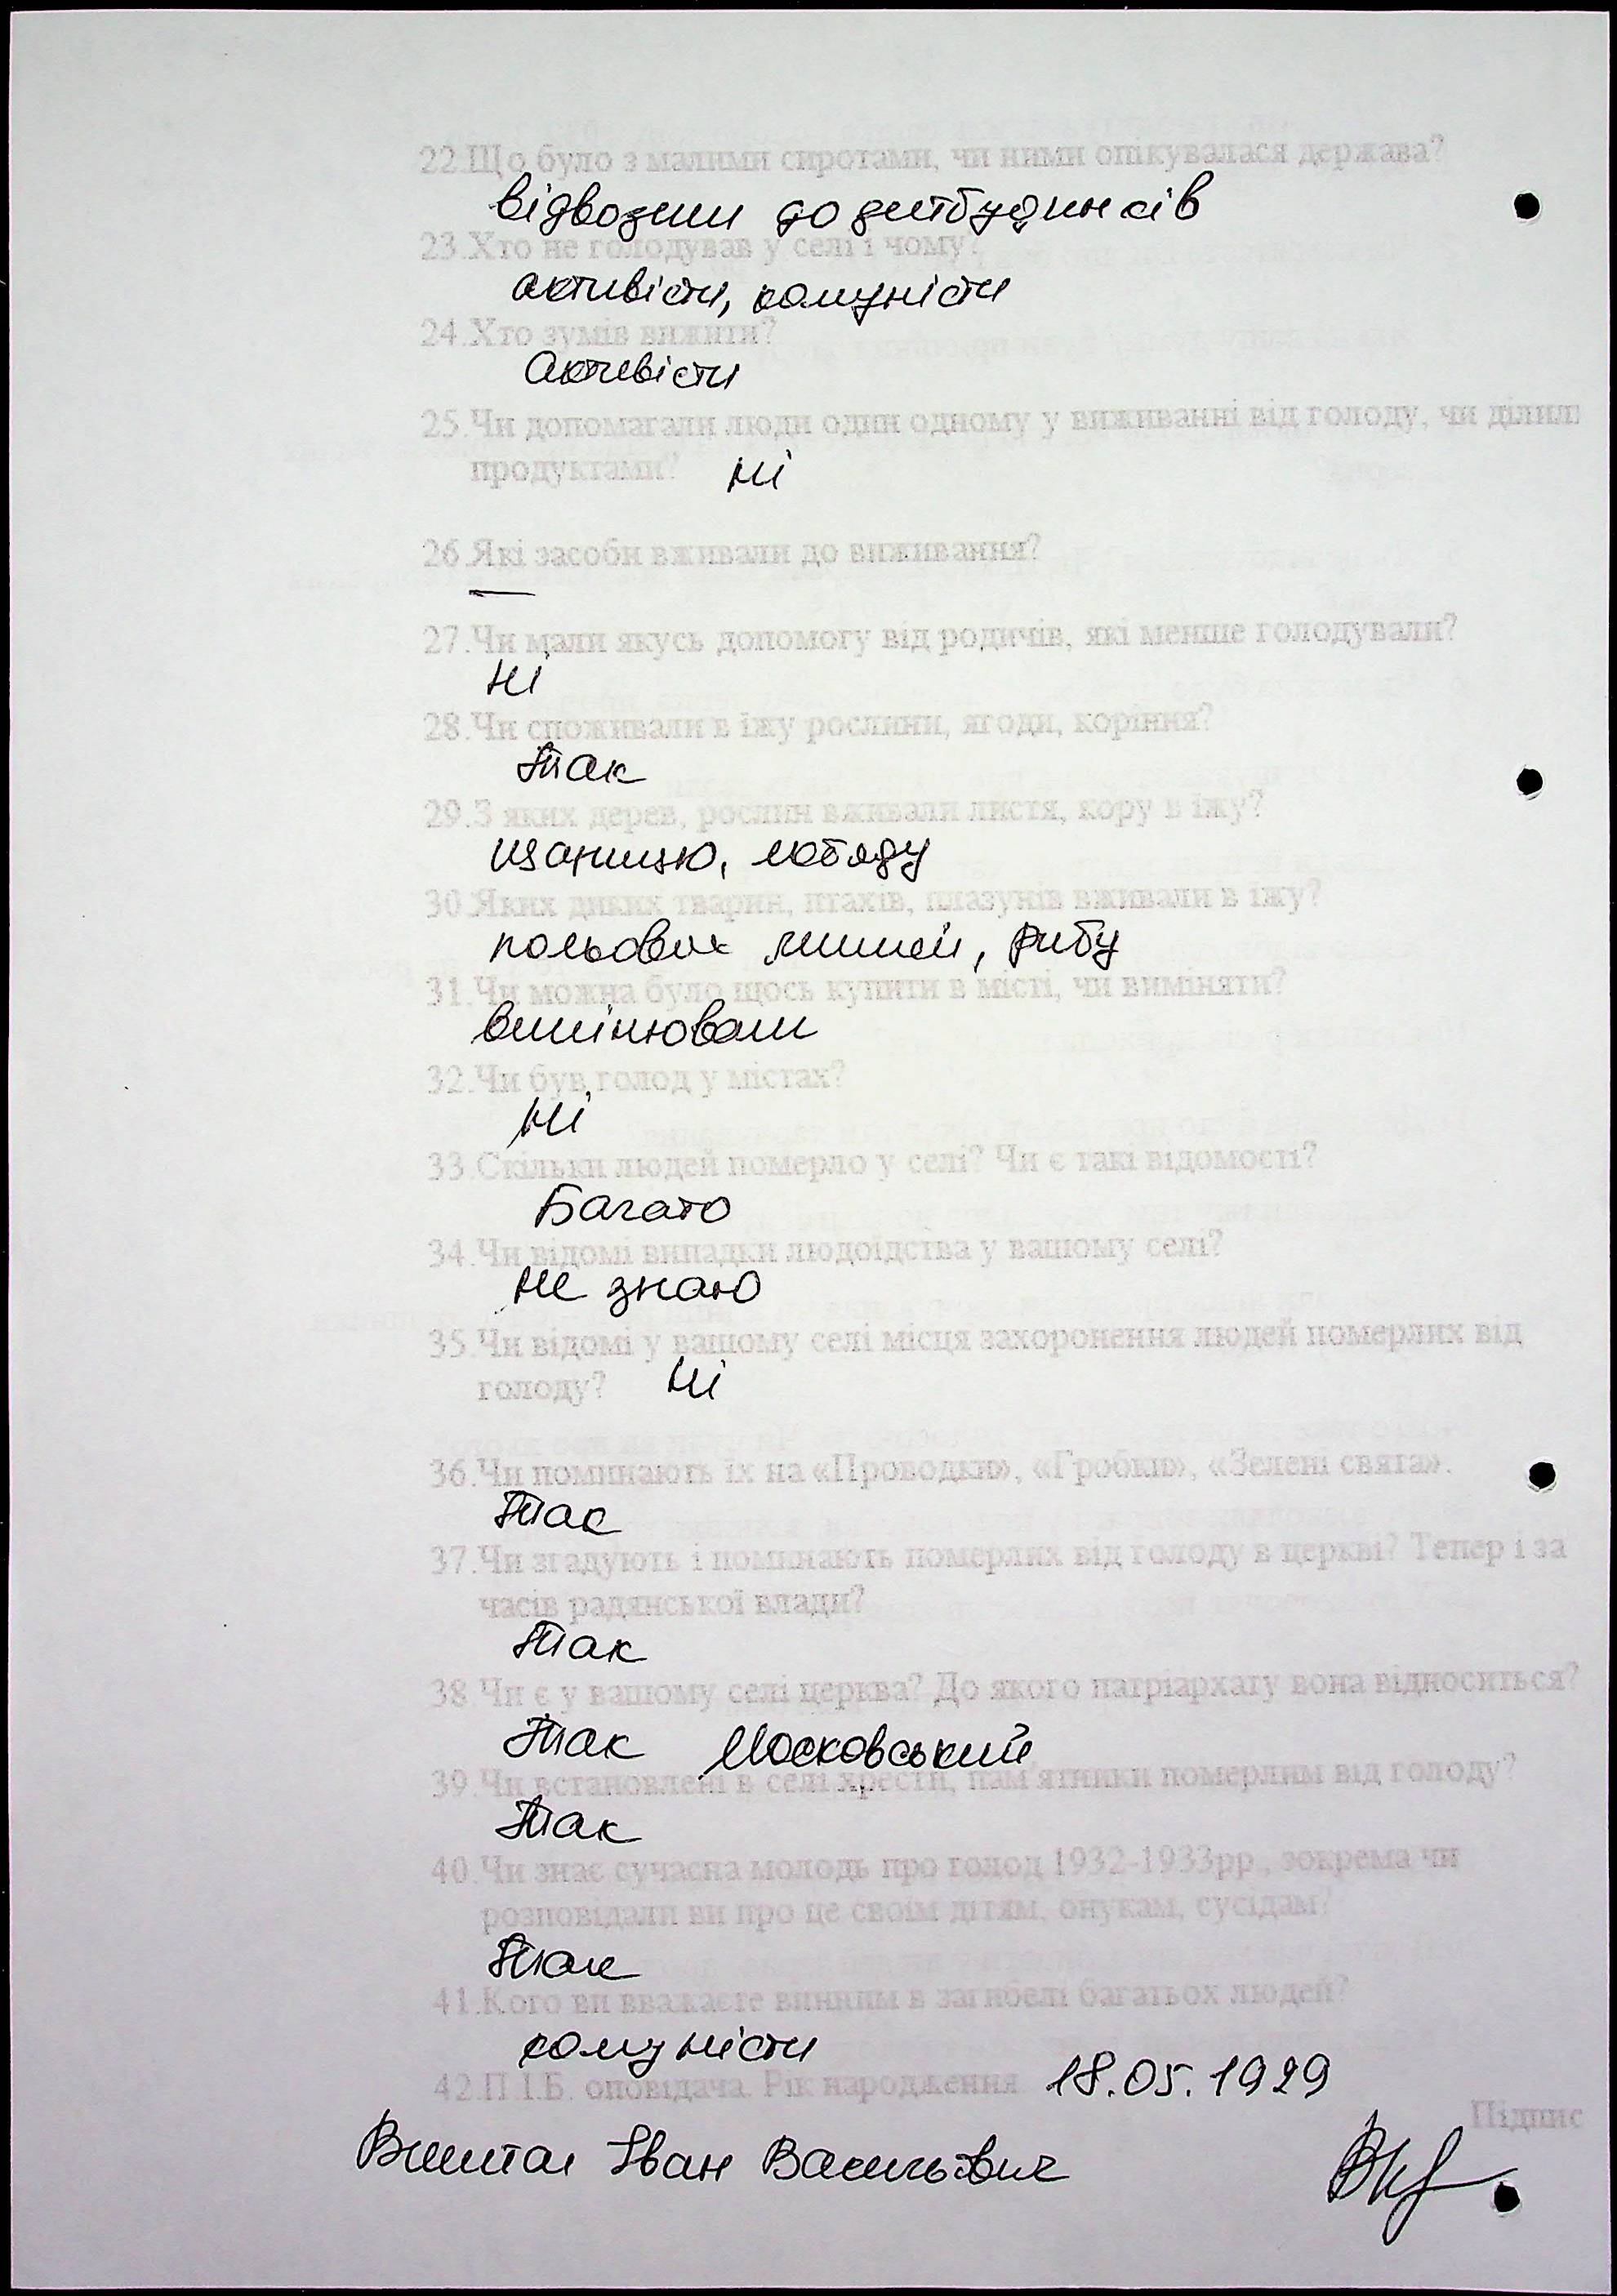 22.Що було з малими сиротами, чи ними опікувалася держава?
відвозили до дитбудинків
23.Хто не голодував у селі і чому?
активісти, комуністи
24.Хто зумів вижити?
Активісти
25.Чи допомагали люди один одному у виживанні від голоду, чи ділили
продуктами? Ні
26.Які засоби вживали до виживання?
—
27.Чи мали якусь допомогу від родичів, які менше голодували?
Ні
28.Чи споживали в їжу рослини, ягоди, коріння?
Так
29.З яких дерев, рослин вживали листя, кору в їжу?
лободу
30.Яких диких тварин, птахів, плазунів вживали в їжу?
польових мишей, рибу
31.Чи можна було щось купити в місті, чи виміняти?
вимінювали
32.Чи був голод у містах?
Ні
33.Скільки людей померло у селі? Чи є такі відомості?
Багато
34.Чи відомі випадки людоїдства у вашому селі?
Не знаю
35.Чи відомі у вашому селі місця захоронення людей померлих від
голоду? Ні
36.Чи поминають їх на «Проводки», «Гробки», «Зелені свята».
Так
37.Чи згадують і поминають померлих від голоду в церкві? Тепер і за
часів радянської влади?
Так
38.Чи є у вашому селі церква? До якого патріархату вона відноситься?
Так Московський
39.Чи встановлені в селі хрести, пам'ятники померлим від голоду?
Так
40.Чи знає сучасна молодь про голод 1932-1933рр., зокрема чи
розповідали ви про це своїм дітям, онукам, сусідам?
Так
41.Кого ви вважаєте винним в загибелі багатьох людей?
комуністи
42.П.І.Б. оповідача. Рік народження 18.05.1929
Підпис
Іван Васильович